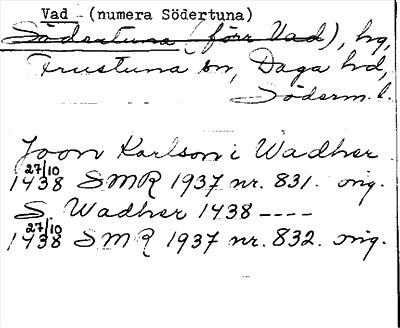 Vad - (numera Södertuna)
Södertuna (förr Vad), hg,
Frustuna sn, Daga hd,
Söderm. l.
Joon Karlson i Wadher
27/10
1438 SMR 1937 nr. 831. orig.
S. Wadher 1438 ----
27/10
1438 SMR 1937 nr. 832. orig.